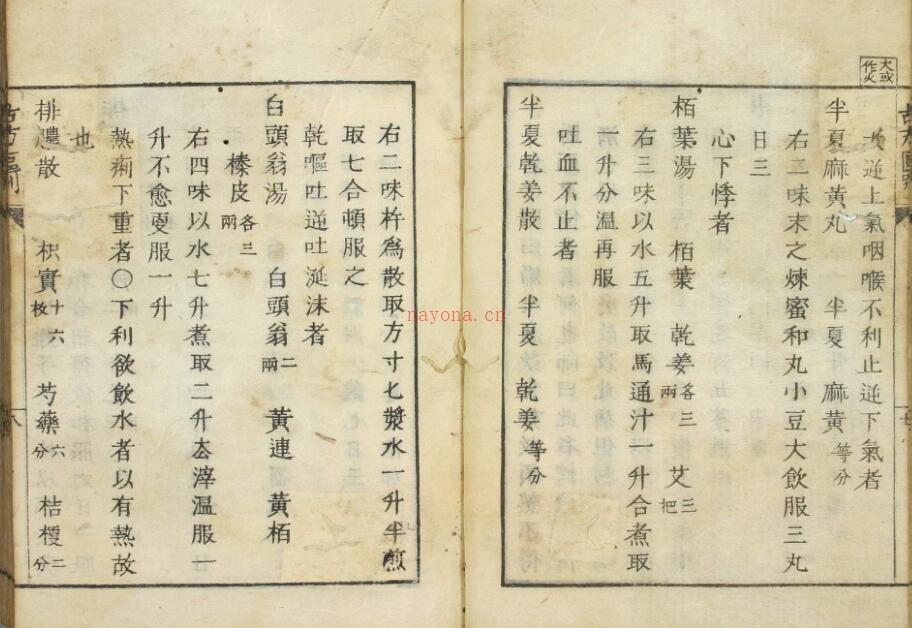 大或
作火
大逆上氣咽喉不利止逆下氣者
半夏麻黄丸 半夏 麻黄 等分
右二味末之煉蜜和丸小豆大飲服三丸
日三
心下悸者
栢葉湯 栢葉 乾姜 各三兩 艾 三把
右三味以水五升取馬通汁一升合煮取
一升分温再服
吐血不止者
半夏乾姜散 半夏 乾姜 等分
右二味杵爲散取方寸七漿水一升半煎
取七合頓服之
乾嘔吐逆吐涎沫者
白頭翁湯 白頭翁 二兩 黄連 黄栢
榛皮 各三兩
右四味以水七升煮取二升去滓温服一
升不愈更服一升
熱痢下重者〇下利欲飲水者以有熱故
也
排膿散 枳實 十六枚 芍藥 六分 桔梗 二分
nayona.cn